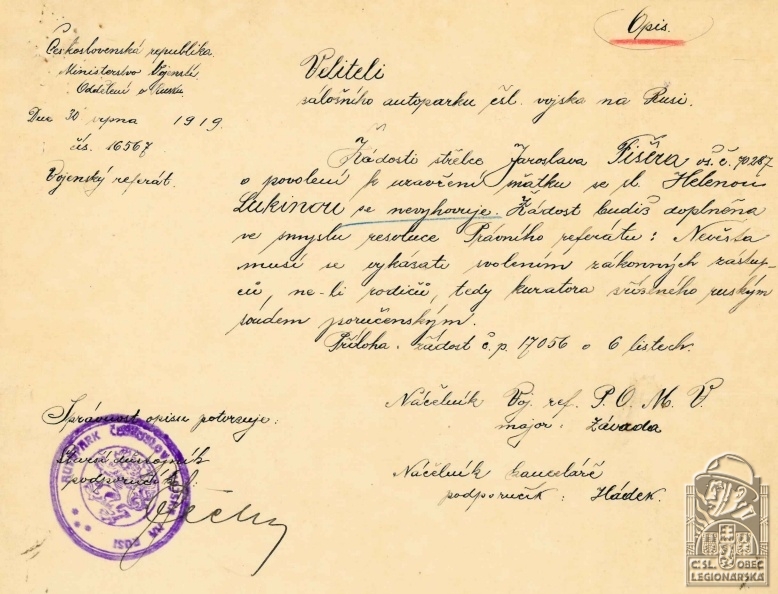 Opis.
Československá republika.
Ministerstvo Vojenství
Oddělení v Rusku
Dne 30 srpna 1919.
čís. 16567
Vojenský referát.
Veliteli
záložního autoparku čsl. vojska na Rusi.
Žádosti střelce Jaroslava Fišera os. č. 70287
o povolení k uzavření sňatku se sl. Helenou
Lukinou se nevyhovuje. Žádost budiž doplněna
ve smyslu resoluce Právního referátu: Nevěsta
musí se vykázati svolením zákonných zástup-
ců, ne-li rodičů, tedy kuratora zřízeného ruským
soudem poručenským.
Příloha. žádost č.p. 17056 o 6 listech.
Náčelník Voj. ref. P. O. M. V.
major: Závada
Náčelník kanceláře
podporučík: Hádek.
Správnost opisu potvrzuje:
starší důstojník
podporučík:
AUTOPARK ČESKOSLOV. NA RUSI
Č.SL. OBEC
LEGIONÁŘSKÁ